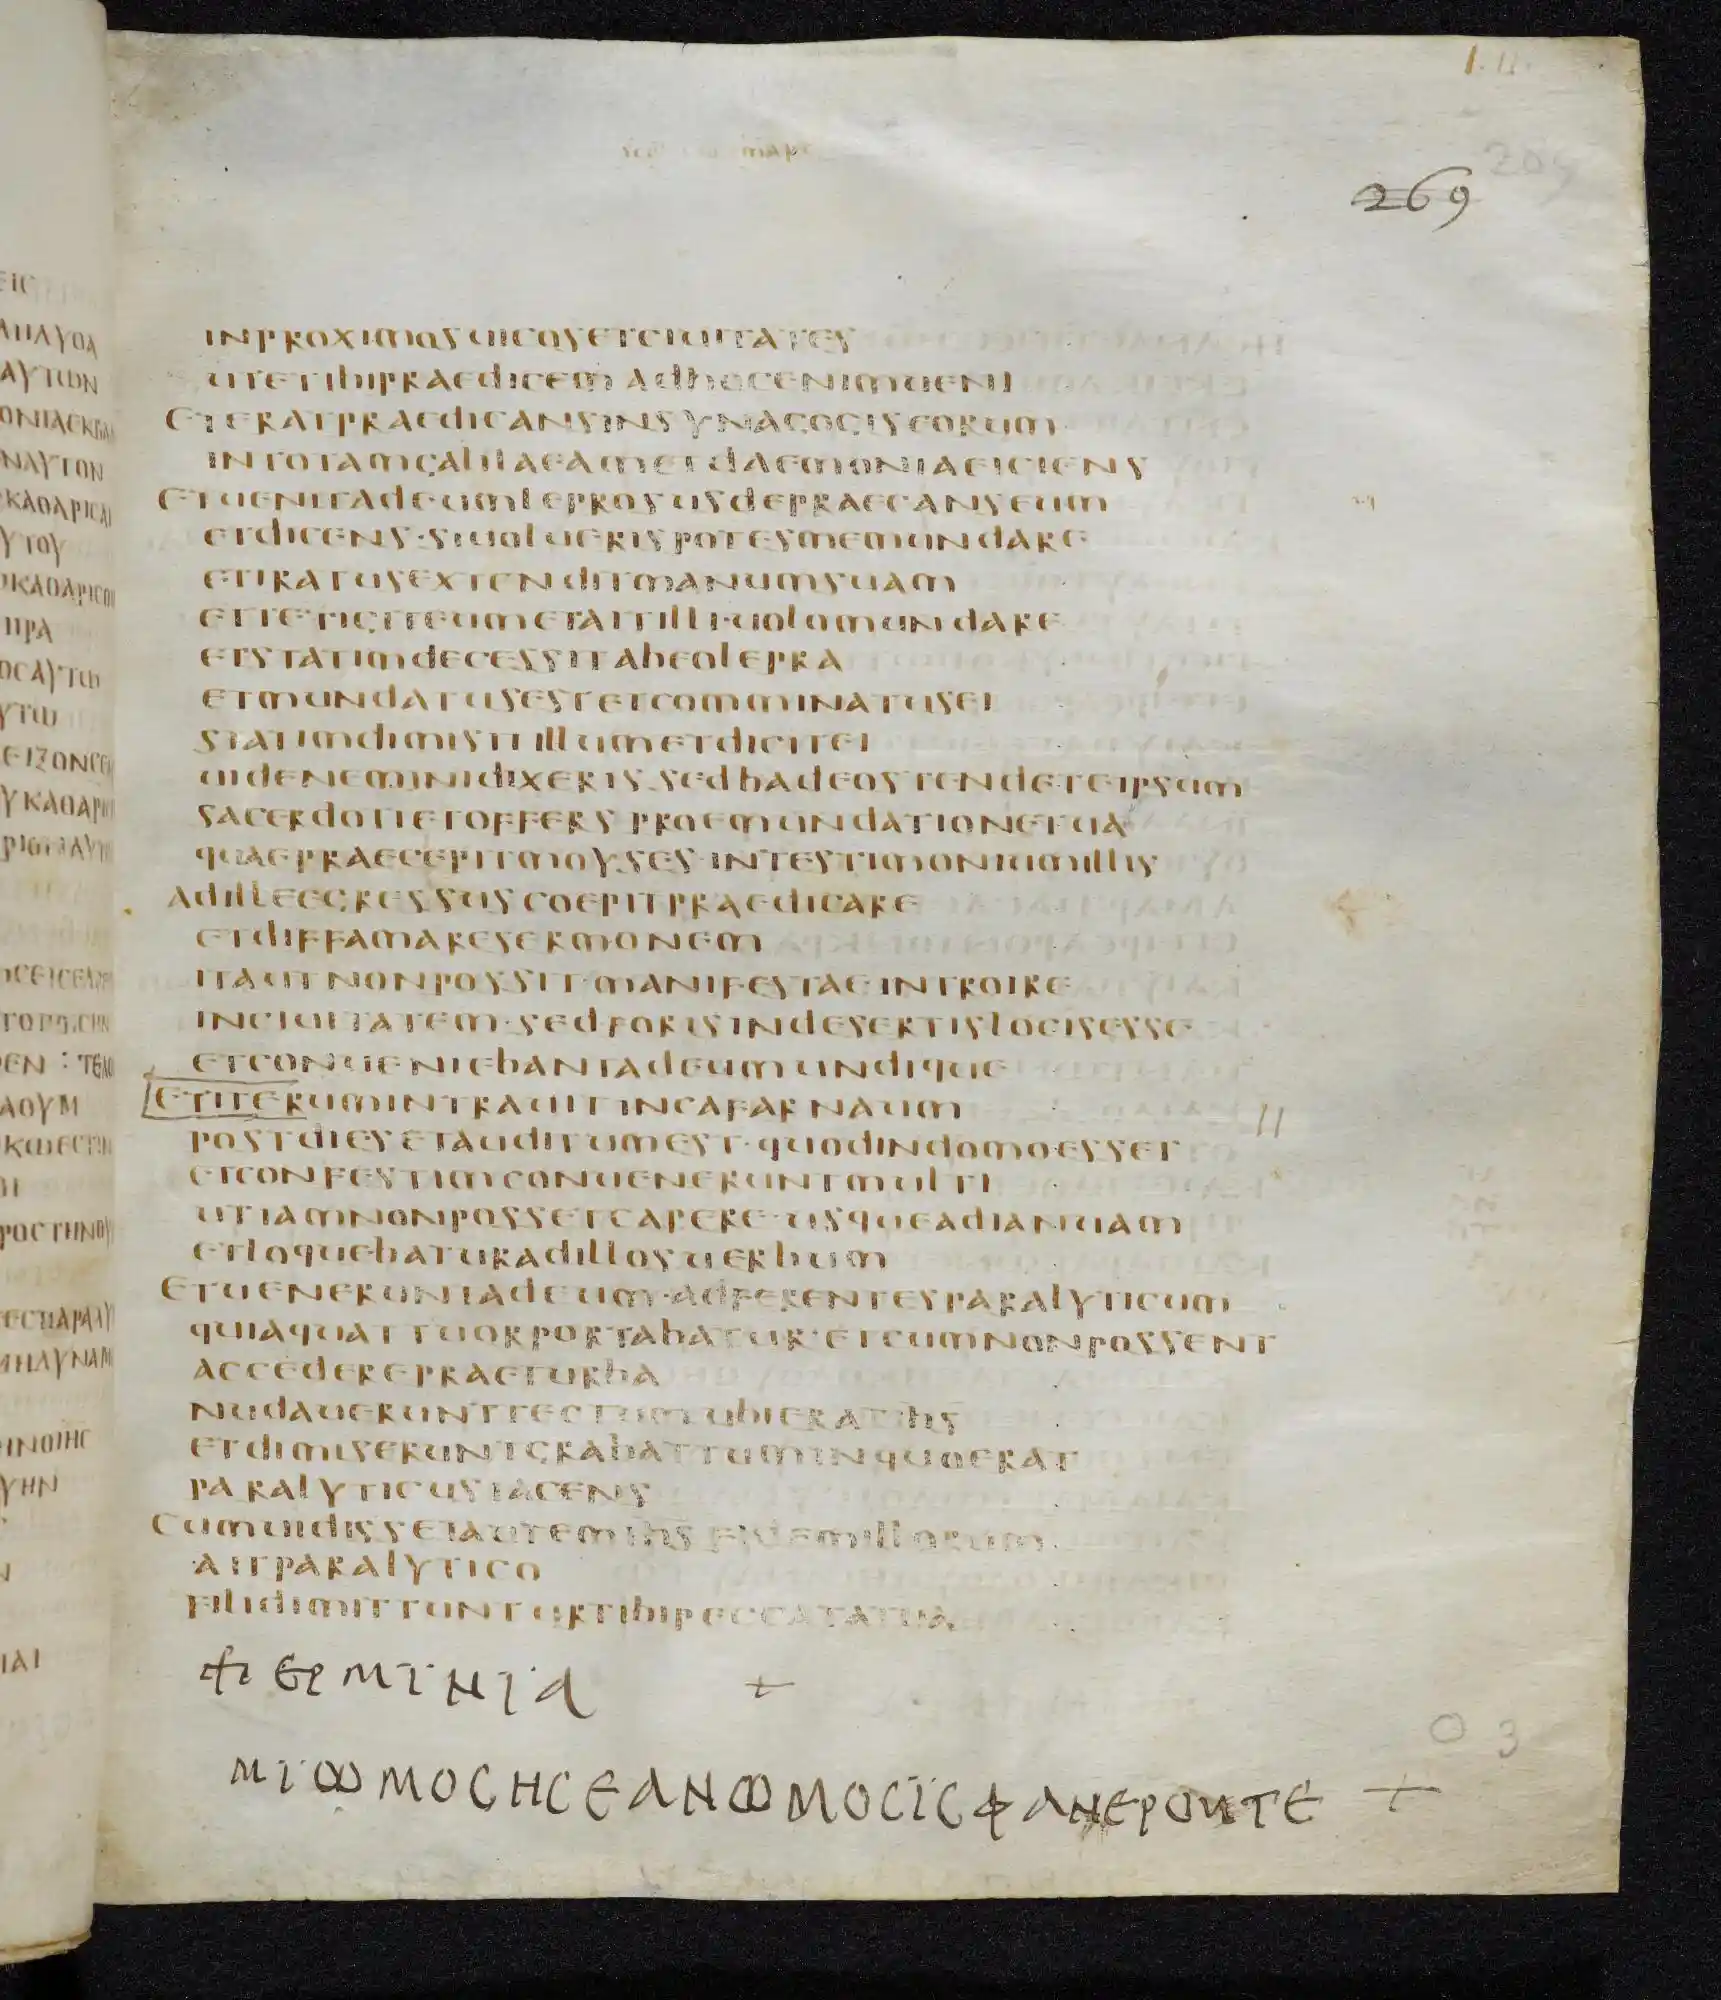 269
INPROXIMOSUICOSETCIUITATES
UTETIBIPRAEDICEM ADHOCENIMUENI
ETERATPRAEDICANSINSYNAGOGISEORUM
INTOTAMGALILAEAMETDAEMONIAEICIENS
ETUENITADEUMLEPROSUSDEPRAECANSEUM
ETDICENS·SIUOLUERISPOTESMEMUNDARE
ETIRATUSEXTENDITMANUMSUAM
ETTETIGITEUMETAITILLI·UOLOMUNDARE
ETSTATIMDECESSITABEOLEPRA
ETMUNDATUSESTETCOMMINATUSEI
STATIMDIMISITILLUMETDICITEI
UIDENEMINIDIXERIS·SEDUADEOSTENDETEIPSUM
SACERDOTIETOFFERS PROEMUNDATIONETUA
QUAEPRAECEPITMOYSES·INTESTIMONIUMILLIS
ADILLEEGRESSUSCOEPITPRAEDICARE
ETDIFFAMARESERMONEM
ITAUTNONPOSSIT·MANIFESTAEINTROIRE
INCIUITATEM·SEDFORISINDESERTISLOCISESSE
ETCONUENIEBANTADEUMUNDIQUE
ETITERUMINTRAUITINCAFARNAUM
POSTDIESETAUDITUMEST·QUODINDOMOESSET
ETCONFESTIMCONUENERUNTMULTI
UTIAMNONPOSSETCAPERE·USQUEADIANUAM
ETLOQUEBATURADILLOSUERBUM
ETUENERUNTADEUM·ADFERENTESPARALYTICUM
QUIAQUATTUORPORTABATUR·ETCUMNONPOSSENT
ACCEDEREPRAETURBA
NUDAUERUNTTECTUMUBIERATIHS
ETDIMISERUNTGRABATTUMINQUOERAT
PARALYTICUSIACENS
CUMUIDISSETAUTEMIHS FIDEMILLORUM
·AITPARALYTICO
FILIDIMITTUNTURTIBIPECCATATUA
ΕΡΜΪΝΪΑ +
ΜΪΩΜΟϹΗϹΕΑΝΩΜΟϹΪϹΦΑΝΕΡΟΝΤΕ +